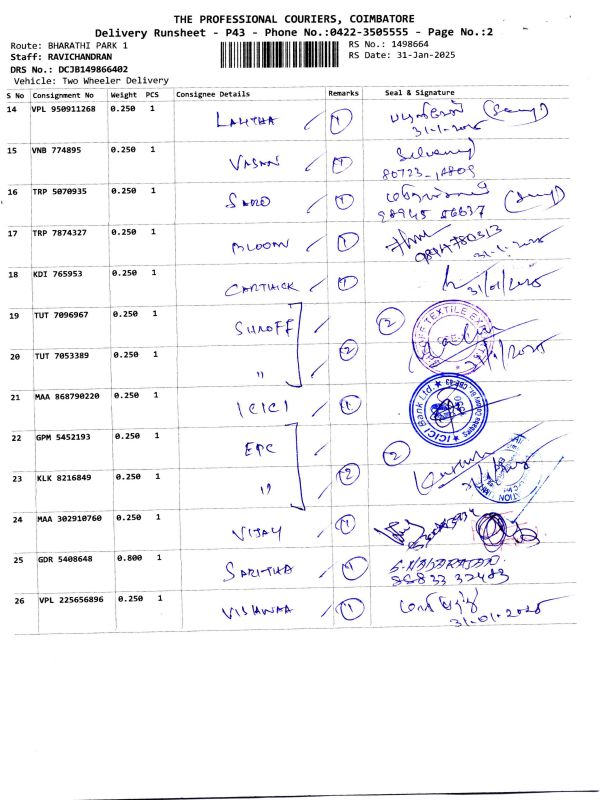 THE PROFESSIONAL COURIERS, COIMBATORE
Delivery Runsheet - P43 - Phone No.:0422-3505555 - Page No.:2
Route: BHARATHI PARK 1
RS No.: 1498664
Staff: RAVICHANDRAN
RS Date: 31-Jan-2025
DRS No.: DCJB149866402
Vehicle: Two Wheeler Delivery
S No Consignment No Weight PCS Consignee Details Remarks Seal & Signature
14 VPL 950911268 0.250 1 LALITHA 1
31-1-2025
15 VNB 774895 0.250 1 VASAN 1 Selvaraj
80723-14809
16 TRP 5070935 0.250 1 SARO 1
98945 56637
17 TRP 7874327 0.250 1 BLOOM 1
9844780313
18 KDI 765953 0.250 1 CARTHICK 1 31/01/2025
19 TUT 7096967 0.250 1 SUNOFF 2
20 TUT 7053389 0.250 1 " 2
21 MAA 868790220 0.250 1 ICICI 1 ICICI Bank Ltd.
22 GPM 5452193 0.250 1 EPC 2
23 KLK 8216849 0.250 1 " 2
24 MAA 302910760 0.250 1 VIJAY 1
25 GDR 5408648 0.800 1 SARITHA 1 G. NAGARAJAN
98833 32483
26 VPL 225656896 0.250 1 VISHWAA 1
31-01-2025